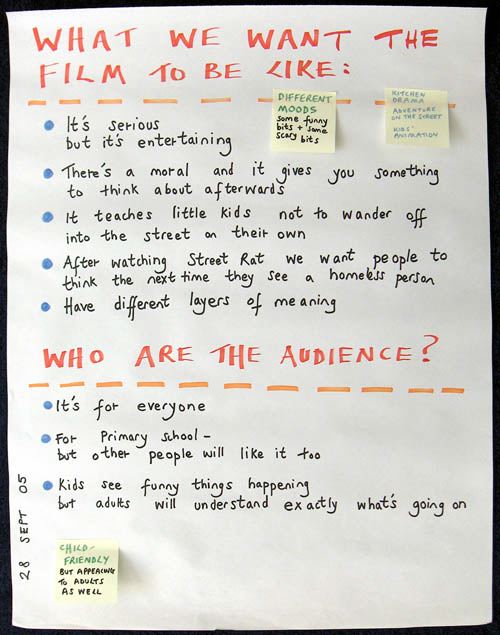 WHAT WE WANT THE
FILM TO BE LIKE:
DIFFERENT
MOODS
some funny
bits + some
scary bits
KITCHEN
DRAMA
ADVENTURE
ON THE STREET
KIDS'
ANIMATION
It's serious
but it's entertaining
There's a moral and it gives you something
to think about afterwards
It teaches little kids not to wander off
into the street on their own
After watching Street Rat we want people to
think the next time they see a homeless person
Have different layers of meaning
WHO ARE THE AUDIENCE?
It's for everyone
For Primary school -
but other people will like it too
Kids see funny things happening
but adults will understand exactly what's going on
28 SEPT 05
CHILD-
FRIENDLY
BUT APPEALING
TO ADULTS
AS WELL